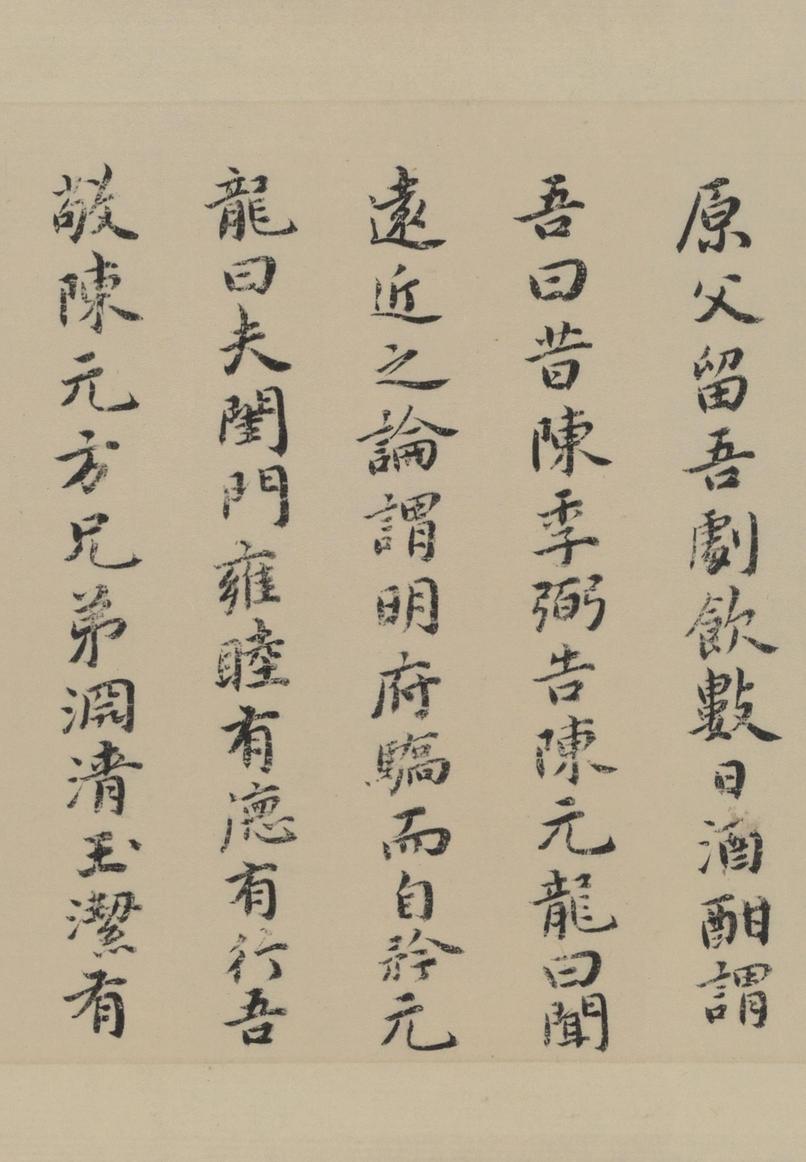 原父留吾劇飲數日酒酣謂
吾曰昔陳季弼告陳元龍曰聞
遠近之論謂明府驕而自矜元
龍曰夫閨門雍睦有德有行吾
敬陳元方兄弟淵清玉潔有